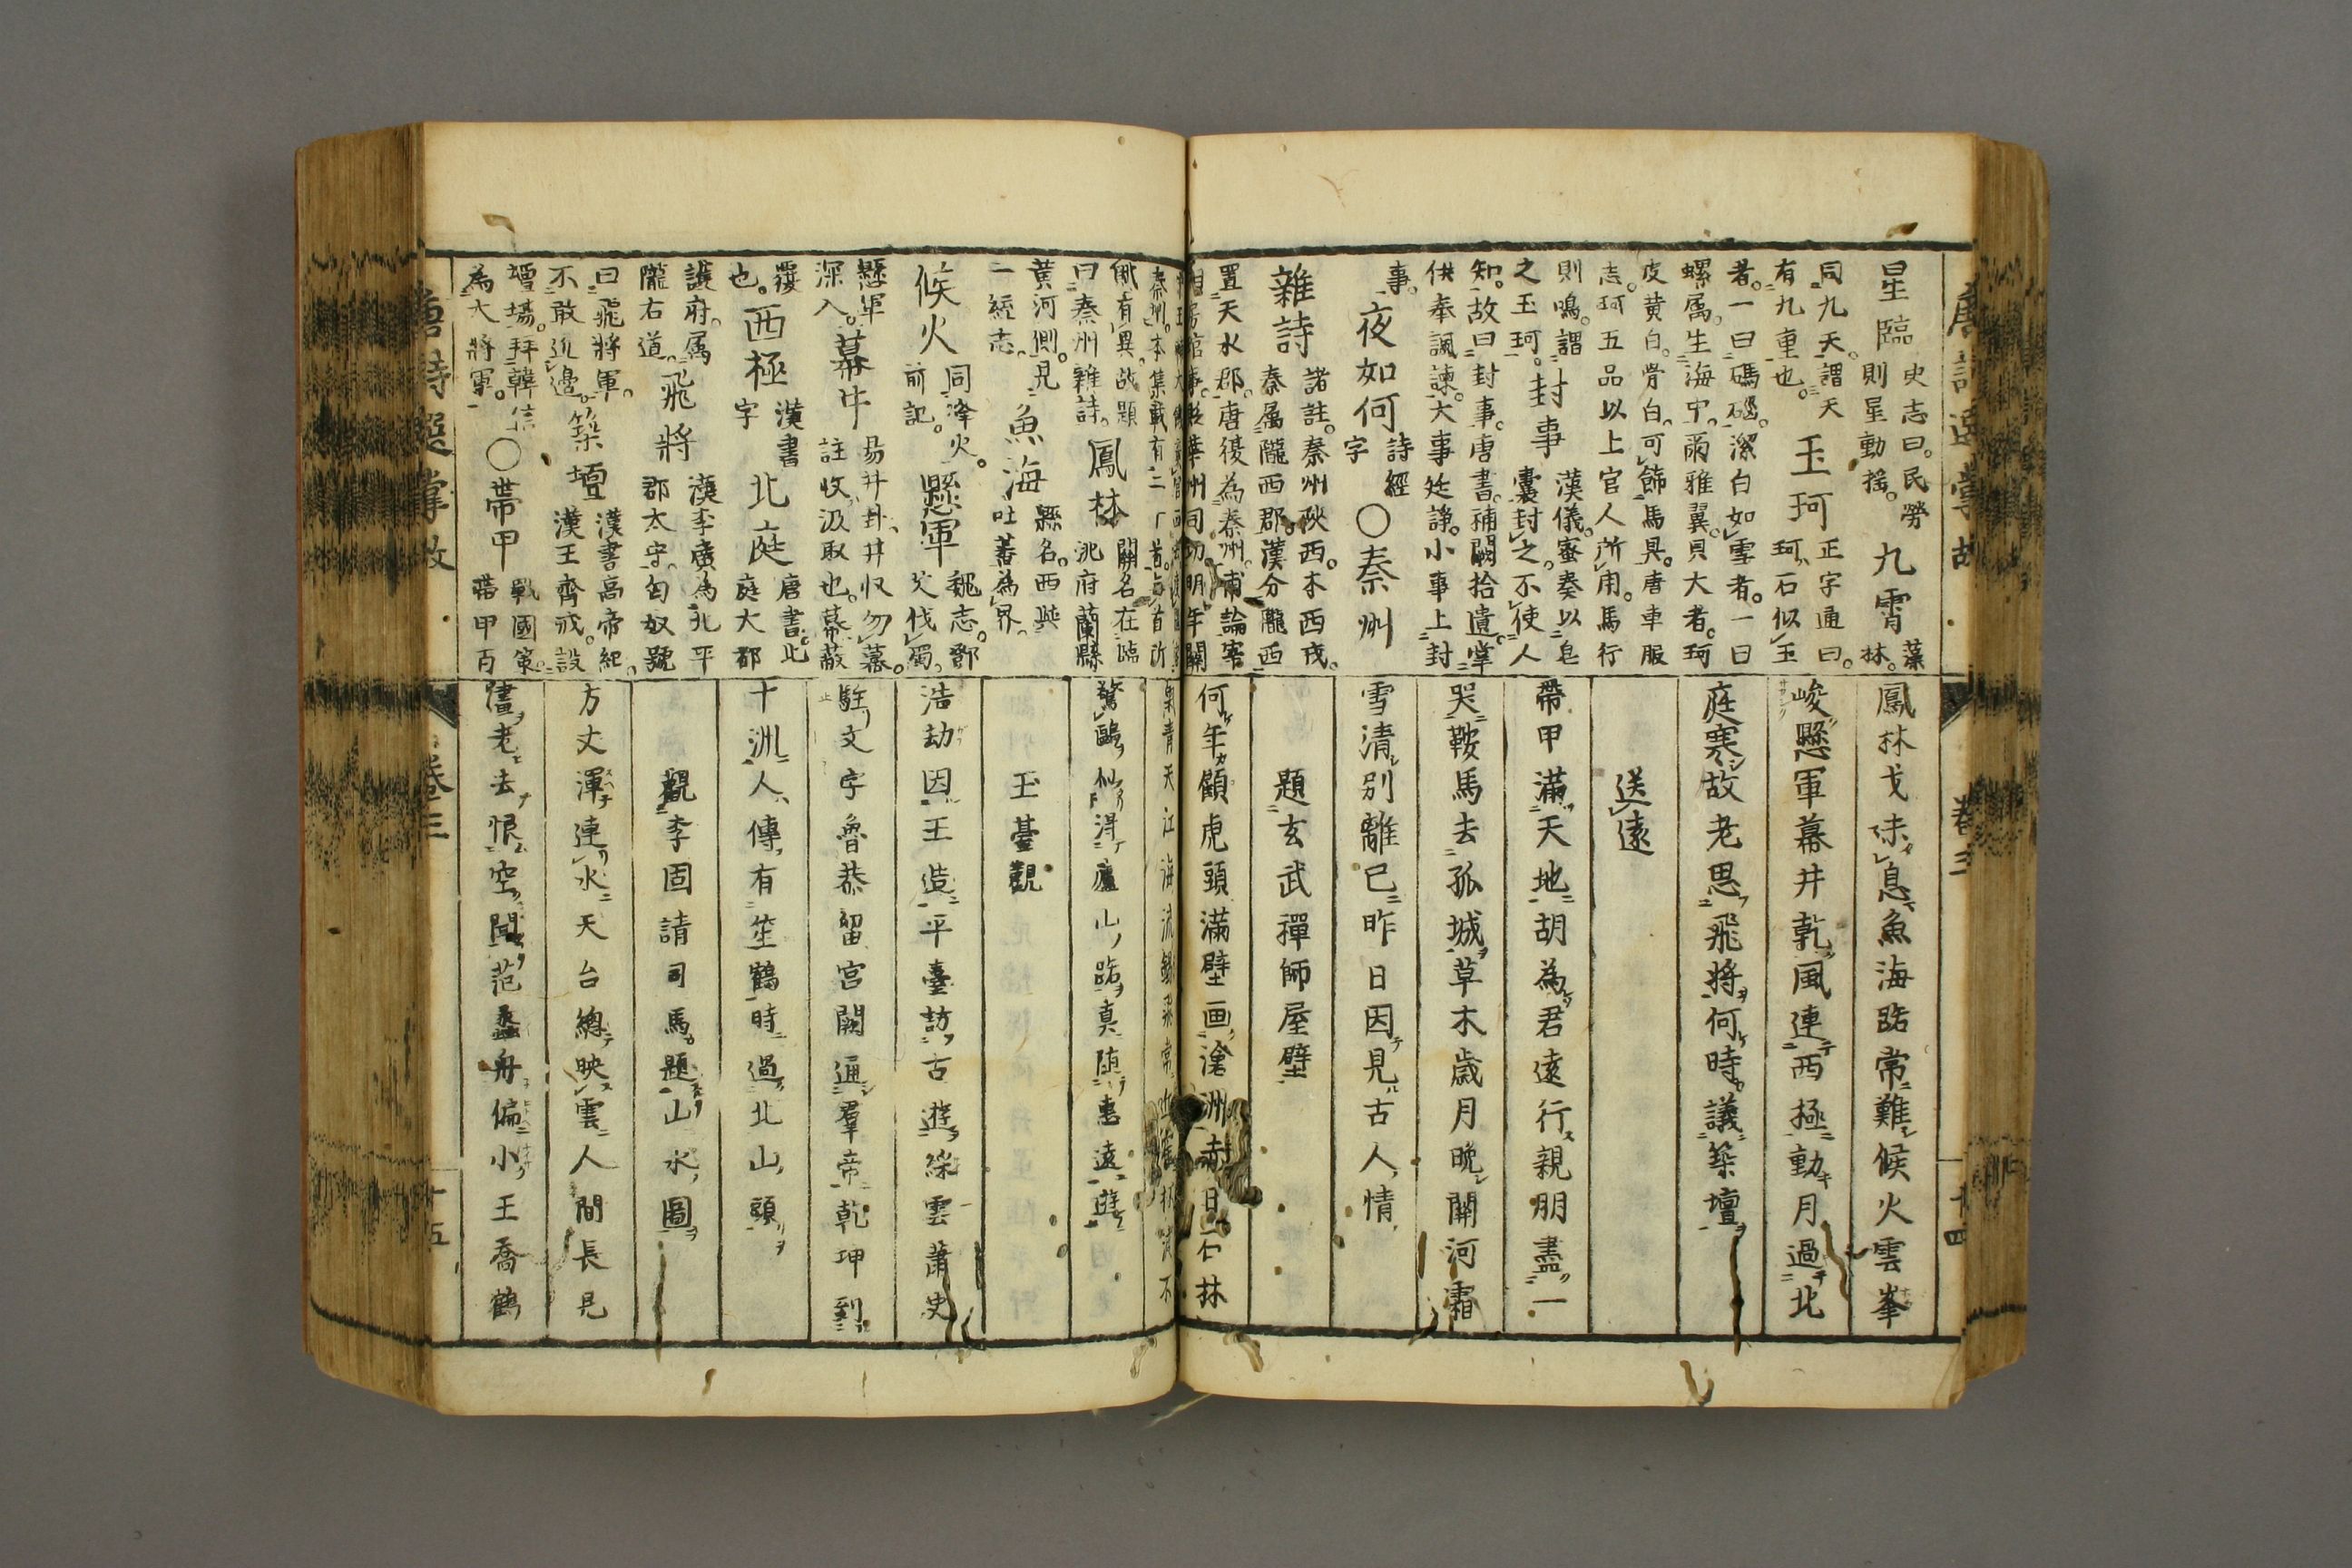 星臨 史志曰。民勞
則星動搖。九霄 藻
林。
同九天。謂天
有九重也。玉珂 正字通曰。
珂、石似玉
者。一曰碼碯。潔白如雪者。一曰
螺属。生海中。爾雅翼。貝大者。珂
皮黄白。骨白。可飾馬具。唐車服
志。珂五品以上官人所用。馬行
則鳴。謂
之玉珂。封事 漢儀。蜜奏以皂
囊封之。不使人
知。故曰封事。唐書。補闕拾遺。掌
供奉諷諫。大事廷諍。小事上封
事。夜如何 詩經
字 〇秦州
雜詩 諸註。秦州陜西。本西戎。
秦属隴西郡。漢分隴西
置天水郡。唐復為秦州。
鳳林戈未息魚海路常難候火雲峯
峻懸軍幕井乾風連西極動月過北
庭寒故老思飛將何時議築壇
送遠
帶甲滿天地胡為君遠行親朋盡一
哭鞍馬去孤城草木歳月晩關河霜
雪清別離已昨日因見古人情
題玄武禪師屋壁
何年顧虎頭滿壁画滄洲赤日石林
卷三
十四
秦州。本集載有二十首。
曰秦州雜詩。鳳林 關名。在臨
洮府蘭縣
黄河側。見
一統志。魚海 縣名。西與
吐蕃為界。
候火 同烽火。
前記。懸軍 魏志。鄧
艾伐蜀。
懸軍
深入。幕井 易井卦、井収勿幕。
註、收、汲取也。幕蔽
覆
也。西極 漢書
字 北庭 唐書。北
庭大都
護府。属
隴右道。飛將 漢李廣為北平
郡太守。匈奴號
曰飛將軍。
不敢近邊。築壇 漢書高帝紀。
漢王齊戒。設
壇場。拜韓信
為大將軍。〇帶甲 戰國策。
帶甲百
氣青天江海流錫飛常近鶴杯渡不
驚鷗似得廬山路真随惠遠遊
玉臺觀
浩劫因王造平臺訪古遊綵雲蕭史
駐文字魯恭留宮闕通羣帝乾坤到
十洲人傳有笙鶴時過北山頭
觀李固請司馬題山水圖
方丈渾連水天台總映雲人間長見
畫老去恨空聞范蠡舟偏小王喬鶴
唐詩選掌故
卷三
十五